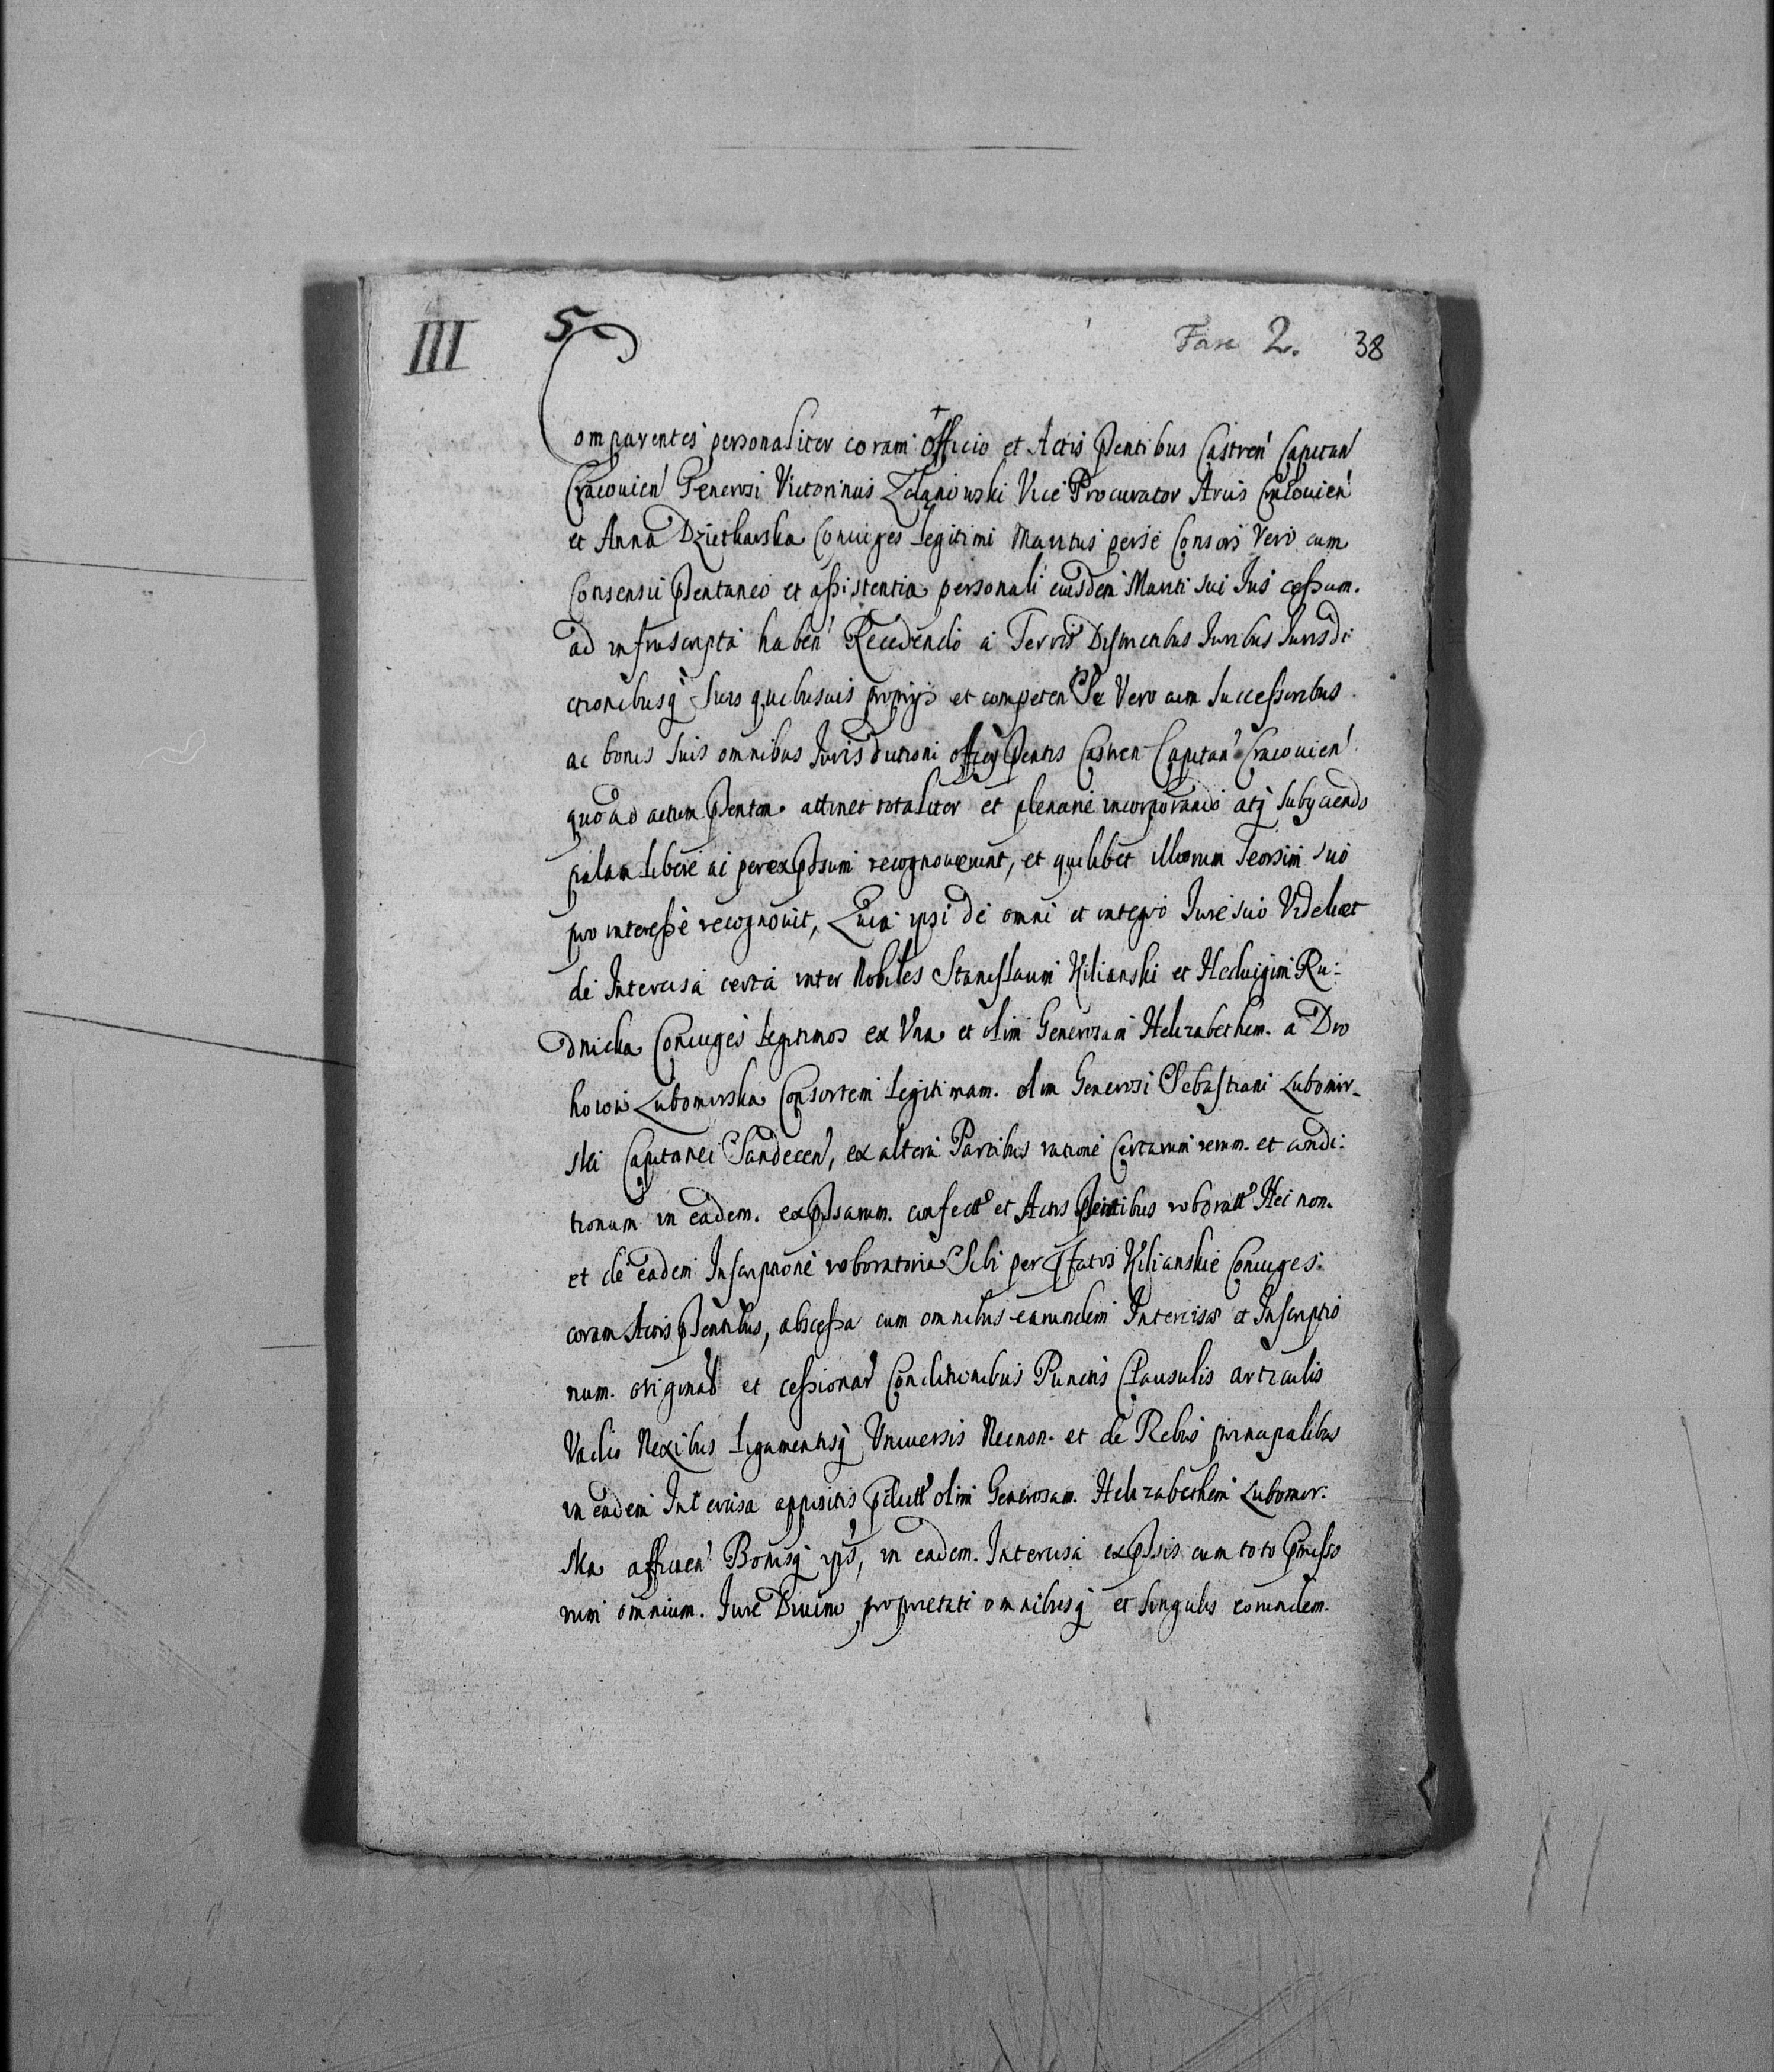 III 5 Fasc 2. 38
Comparentes personaliter coram Officio et Actis Pentibus Castren Capitan
Cracouien Generosi Victorinus Zdanowski Vice Procurator Arcis Cracouien
et Anna Dzietharska Coniuges Legitimi Maritus perse Consors Vero cum
Consensu Pentaneo et assistentia personali eiusdem Mariti sui Jus cessum.
ad infrascripta haben Recedendo a Terris Districtibus Juribus Jurisdi
ctionibusq Suis quibusuis proprijs et competen Se Vero cum Successoribus
ac bonis Suis omnibus Jurisdictioni officij Pentis Castren Capitan Cracouien
quoad actum Pentem attinet totaliter et plenarie incorporando atq Subyciendo
palam Libere ac per expssum recognouerunt, et quilibet illorum Seorsim suo
pro interesse recognouit, Quia ipsi de omni et integro Jure suo Videlicet
de Intercisa certa inter Nobiles Stanislaum Kilianski et Heduigim Ru:
dnicka Coniuges Legitimos ex Vna et olim Generosam Helizabethem. a Dro
hoiow Lubomirska Consortem Legitimam. olim Generosi Sebastiani Lubomir-
ski Capitanei Sandecen, ex altera Partibus ratione Certarum rerum. et condi:
tionum in eadem. expssarum. confect et Actis Pentibus roboratt Nec non.
et de eadem Inscriptione roboratoria Sibi per Pfatos Kilianskie Coniuges.
coram Actis Pentibus, abscessa cum omnibus earundem Intercisae et Inscriptio
num. originall et cessionar Conditionibus Punctis Clausulis articulis
Vadio Nexibus Ligamentisq Vniuersis Necnon. et de Rebus principalibus
in eadem Intercisa appositis olim Generosam. Helizabethem Lubomir:
ska afficien Bonisq ips, in eadem. Intercisa expssis cum toto Pmisso
rum omnium. Jure Dominio proprietate omnibusq et Singulis eorundem.